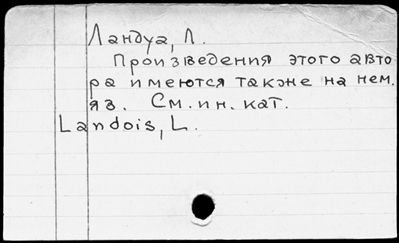 Ландуа, Л.
Произведения этого авто-
ра имеются также на нем.
яз. См. ин. кат.
Landois, L.